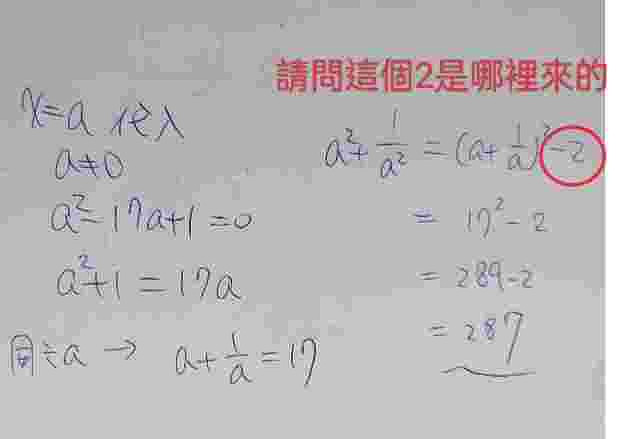 請問這個2是哪裡來的
x=a 代入
a≠0
a²-17a+1=0
a²+1=17a
同÷a → a+1/a=17
a²+1/a²=(a+1/a)²-2
=17²-2
=289-2
=287